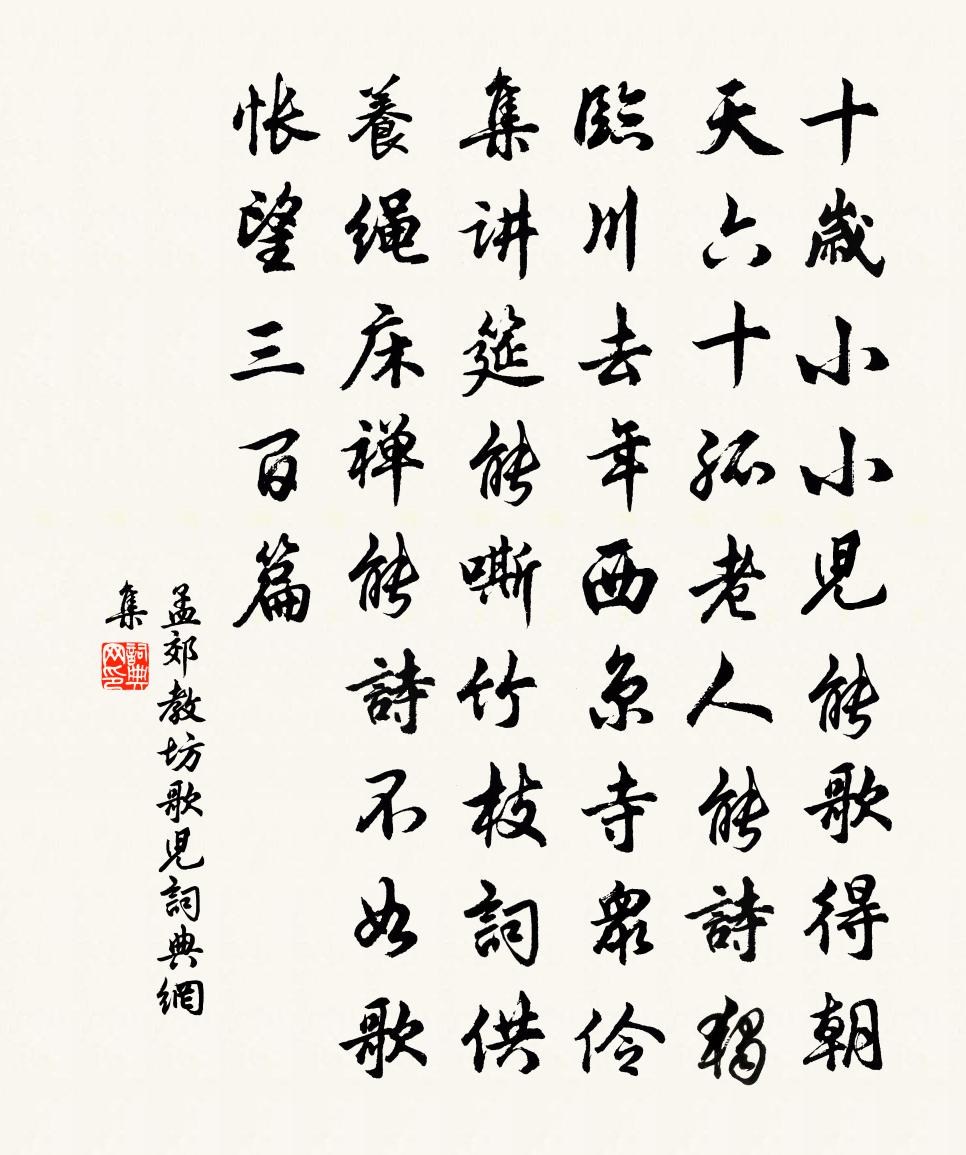 十歲小小児能歌得朝
天六十孤老人能詩獨
臨川去年西京寺眾伶
集讲筵能嘶竹枝詞供
養绳床禅能詩不如歌
怅望三百篇
孟郊教坊歌児詞典網
集
詞典
网印